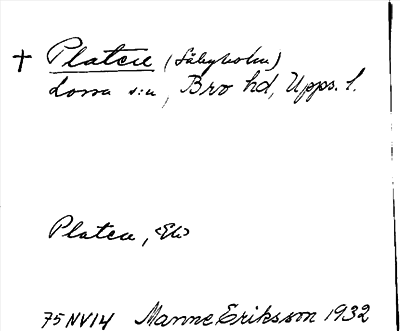 † Platen (Säbyholm)
Låssa s:n, Bro hd, Upps. l.
Platen, <Ek>
75NV14 Manne Eriksson 1932